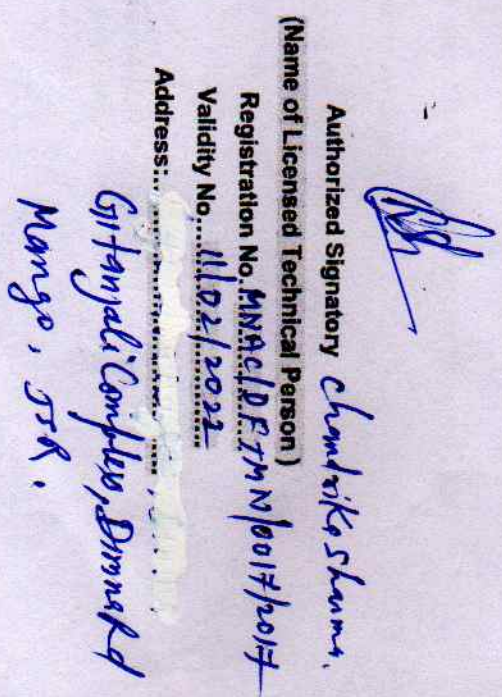 Authorized Signatory Chandrika Sharma.
(Name of Licensed Technical Person)
Registration No. MNAC/DFTMN/0017/2017
Validity No. 11/02/2022
Address:
Gitanjali Complex, Dimna Rd
Mango, JSR.